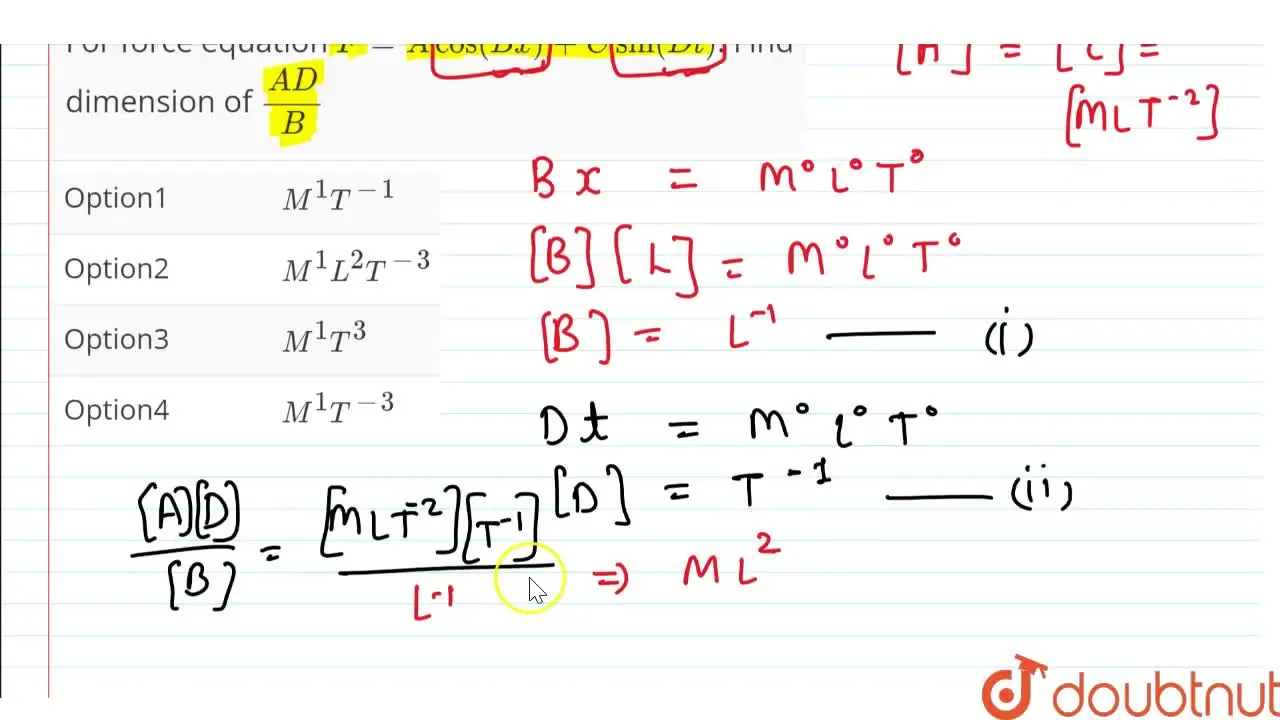 For force equation F = A cos(Bx) + C sin(Dt). Find
dimension of AD/B
[A] = [C] =
[MLT⁻²]
Option1 M¹T⁻¹
Option2 M¹L²T⁻³
Option3 M¹T³
Option4 M¹T⁻³
Bx = M⁰L⁰T⁰
[B][L] = M⁰L⁰T⁰
[B] = L⁻¹ —— (i)
Dt = M⁰L⁰T⁰
[D] = T⁻¹ —— (ii)
[A][D]/[B] = [MLT⁻²][T⁻¹]/L⁻¹ ⇒ ML²
doubtnut